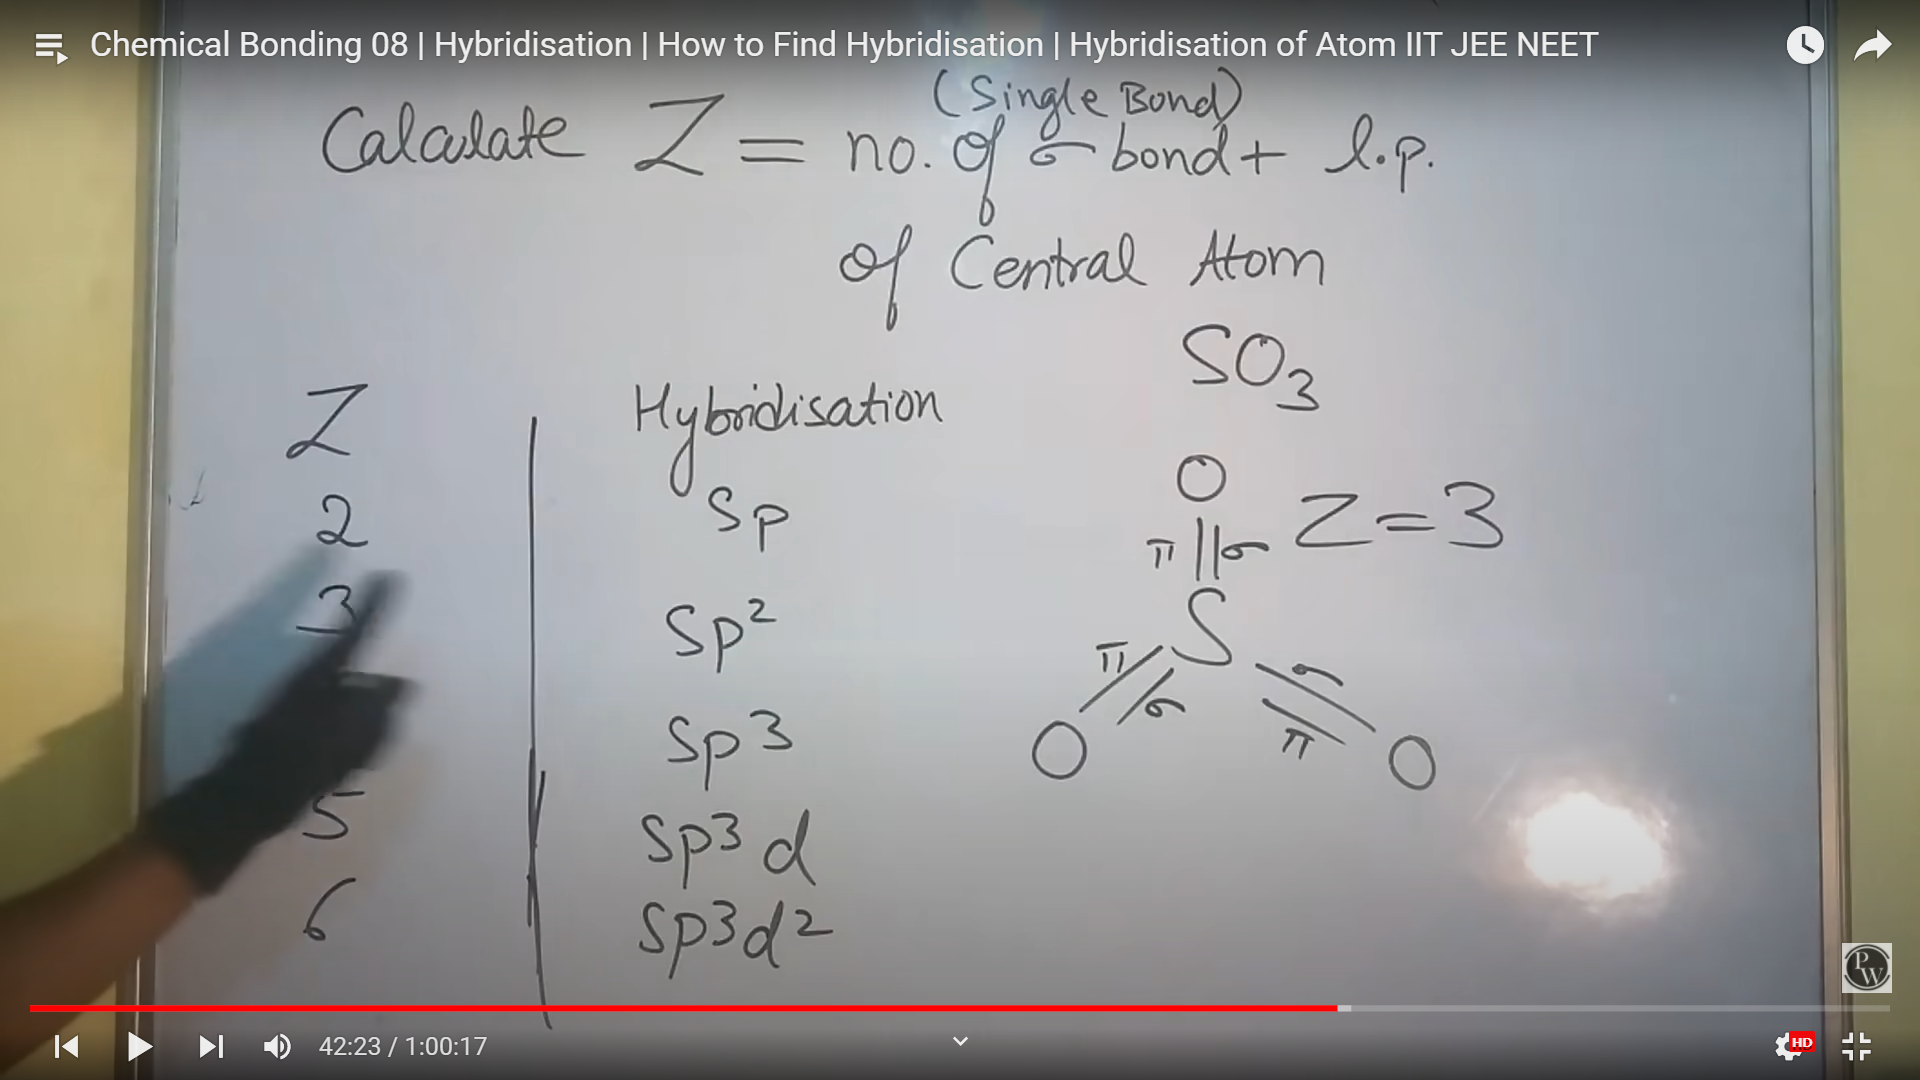 Chemical Bonding 08 | Hybridisation | How to Find Hybridisation | Hybridisation of Atom IIT JEE NEET
(Single Bond)
Calculate Z = no. of σ bond + l.p.
of Central Atom
SO3
Z Hybridisation
2 Sp
3 Sp²
Sp³
5 Sp³d
6 Sp³d²
O Z = 3
π σ
S
π σ σ π
O O
PW
42:23 / 1:00:17
HD